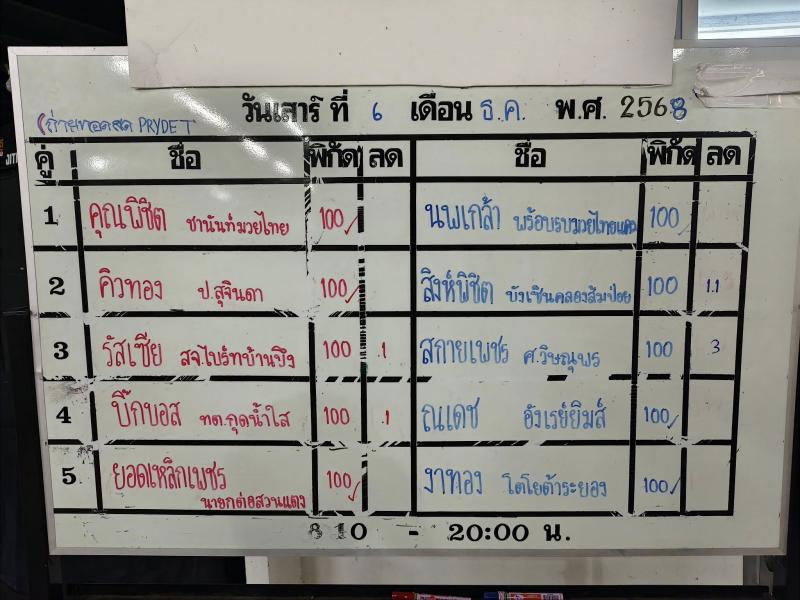 วันเสาร์ ที่ 6 เดือน ธ.ค. พ.ศ. 2568
(ถ่ายทอดสด PRYDET
คู่ ชื่อ พิกัด ลด ชื่อ พิกัด ลด
1 คุณพิชิต ชานันท์มวยไทย 100✓ นพเก้า พร้อบรบมวยไทย 100✓
2 คิวทอง ป.สุจินดา 100✓ สิงห์พิชิต บังเซินคลองส้มป่อย 100 1.1
3 รัสเซีย สจ.ไบร์ทบ้านบึง 100 .1 สกายเพชร ศ.วิษณุพร 100 3
4 บิ๊กบอส ทต.กุดน้ำใส 100 .1 ณเดช อังเรย์ยิมส์ 100✓
5 ยอดเหล็กเพชร นายกต่อสวนแตง 100✓ งาทอง โตโยต้าระยอง 100✓
- 20:00 น.